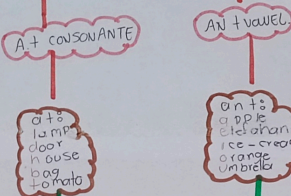 A + CONSONANTE
AN + VOWEL
a t:
lamp
door
house
bag
tomato
an t:
apple
elephan
ice-crea
orange
umbrella